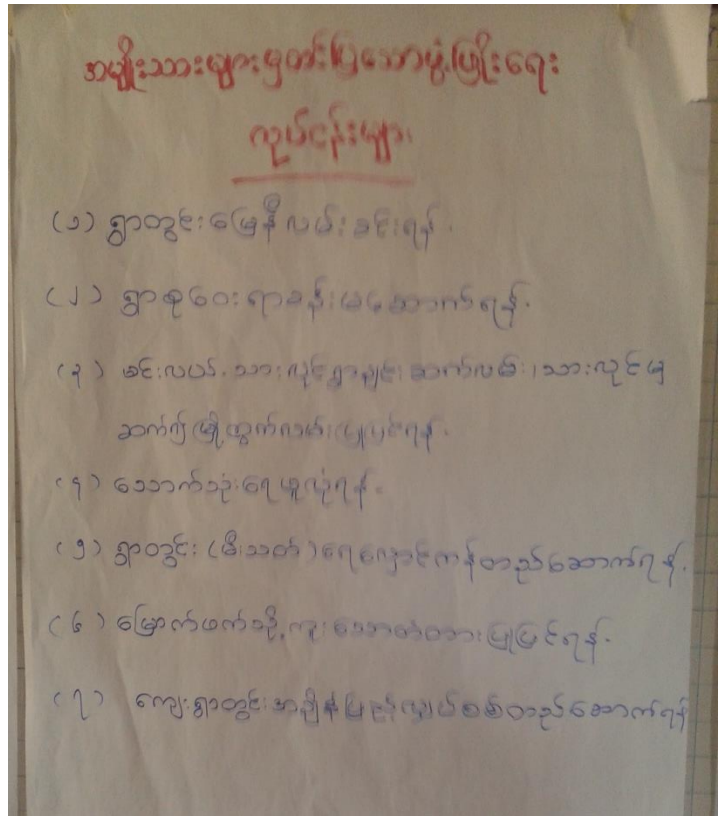 အမျိုးသားများမှတင်ပြသောဖွံ့ဖြိုးရေး
လုပ်ငန်းများ
(၁) ရွာတွင်းမြေနီလမ်းခင်းရန်.
(၂) ရွာစုဝေးရာခန်းမဆောက်ရန်.
(၃) မင်းလယ်, သားလှိုင်ရွာချင်းဆက်လမ်း၊ သားလှိုင်မှ
ဆက်၍မြို့ထွက်လမ်းပြုပြင်ရန်.
(၄) သောက်သုံးရေဖူလုံရန်.
(၅) ရွာတွင်း (မီးသတ်) ရေလှောင်ကန်တည်ဆောက်ရန်.
(၆) မြောက်ဖက်သို့ကူးသောတံတားပြုပြင်ရန်.
(၇) ကျေးရွာတွင်းအချိန်ပြည့်လျှပ်စစ်တည်ဆောက်ရန်